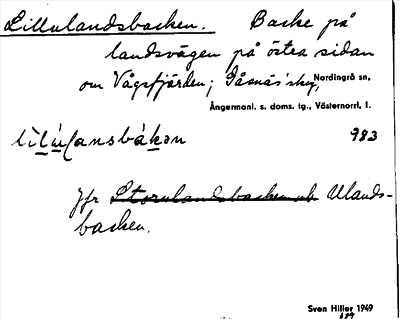 Lillulandsbacken. Backe på
landsvägen på östra sidan
om Vågsfjärden; Nordingrå sn,
Ångermanl. s. doms. tg., Västernorrl. l.
983
jfr Storulandsbacken och Ulands-
backen.
Sven Hiller 1949